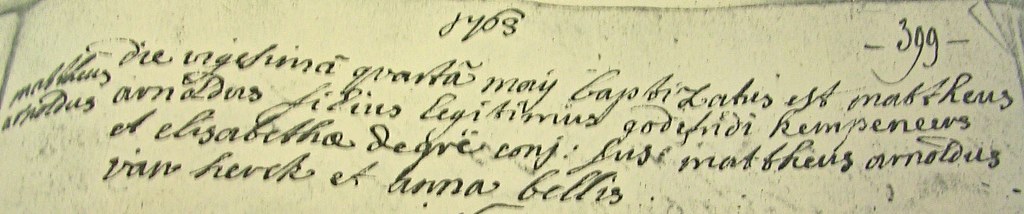 1763
- 399 -
mattheus
arnoldus
die vigesimâ quartâ maÿ baptizatus est mattheus
arnoldus filius legitimus godefridi kempeneers
et elisabethæ degrë conj: sus: mattheus arnoldus
van herck et anna bellis